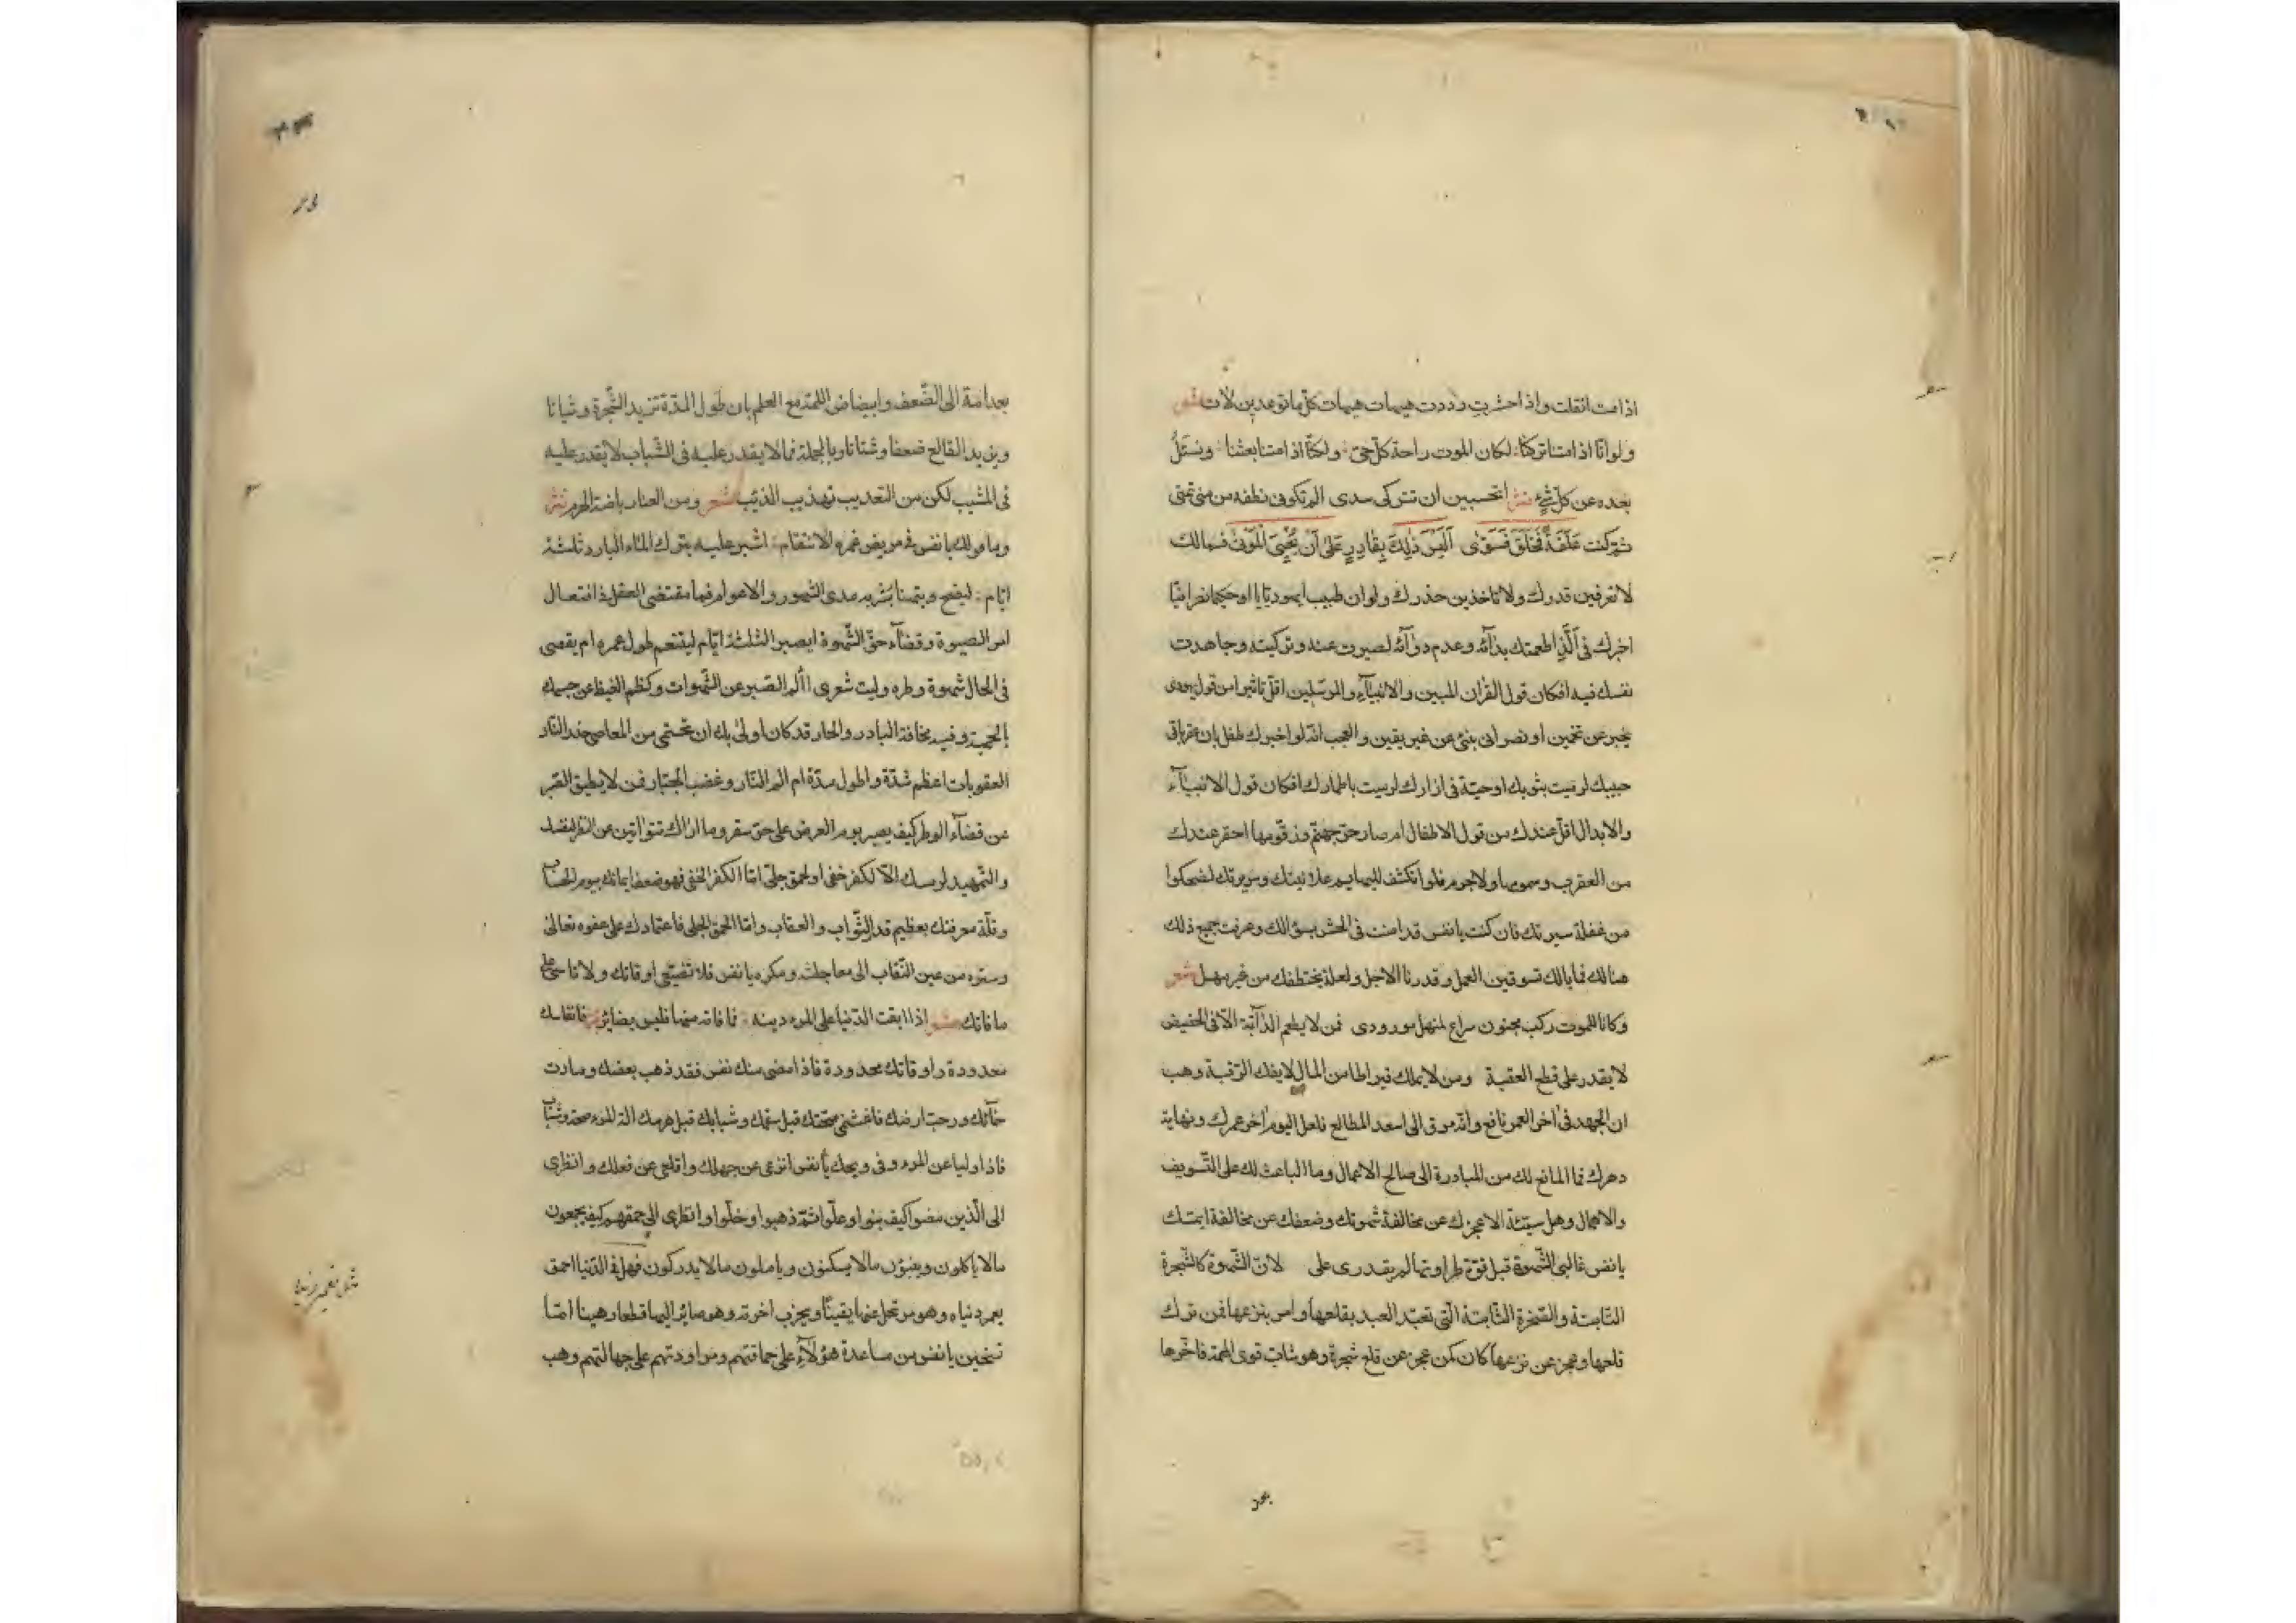 اذا مت انفلت واذا حشرت رددت هيهات هيهات كل ما توعدين لآت شعر
ولو انا اذا متنا تركنا لكان الموت راحة كل حى ولكنا اذا متنا بعثنا ونسئل
بعده عن كل شىء نثر اتحسبين ان تتركى سدى الم تكونى نطفه من منى تمنى
ثم كنت عَلَقَةً فَخَلَقَ فَسَوّٰى اَلَيْسَ ذٰلِكَ بِقَادِرٍ عَلىٰ اَنْ يُحْيِىَ الْمَوْتىٰ فمالك
لا تعرفين قدرك ولا تاخذين حذرك ولو ان طبيبا يهوديّا او حكيما نصرانيّا
اخبرك فى الّذ اطعمتك بدائه وعدم دوائه لصبرت عنه وتركيته وجاهدت
نفسك فيه افكان قول القران المبين والانبياء والمرسلين اقل تاثيرا من قول يهودى
يخبر عن تخمين او نصرانى ينبئ عن غير يقين والعجب انّه لو اخبرك طفل بان عقربا فى
جيبك لرميت بثوبك او حيّة فى ازارك لرميت باطمارك افكان قول الانبياء
والابدال اقل عندك من قول الاطفال ام صار حر جهنّم وزقّومها احقر عندك
من العقرب وسمومها ولا جرم فلو انكشف للبهايم علانيتك وسريرتك لضحكوا
من غفلة سيرتك فان كنت يا نفس قد امنت فى الحشر بسؤالك وعرفت جميع ذلك
هنالك فما بالك تسوفين العمل وقد دنا الاجل ولعله يختطفك من غير مهل شعر
وكانا للموت ركب مجنون سراع لمنهل مورودى فمن لا يطعم الدآبّة الا فى الحضيض
لا يقدر على قطع العقبة ومن لا يملك قيراطا من المال لا يفك الرّقبة وهب
ان الجهد فى اخر العمر نافع وانّه مرق الى اسعد المطالع فلعل اليوم اخر عمرك ونهاية
دهرك فما المانع لك من المبادرة الى صالح الاعمال وما الباعث لك على التّسويف
والاهمال وهل سببه الا عجزك عن مخالفة شهوتك وضعفك عن مخالفة ايمتك
يا نفس غالبى الشّهوة قبل قوّة طراوتها لم يقدرى على لانّ الشّهوة كالشّجرة
النّابتة والصّخرة الثّابتة الّتى تعبّد العبد بقلعها وامر بنزعها فمن ترك
قلعها وعجز عن نزعها كان كمن عجز عن قلع شجرة وهو شابّ قوى الهمة فاخّرها
بعد
بعد امة الى الضّعف وابيضاض اللمة مع العلم بان طول المدّة تزيد الشّجرة وثباتا
ويزيد القالع ضعفا وشتاتا وبالجملة فما لا يقدر عليه فى الشّباب لا يقدر عليه
فى المشيب لكن من التعذيب تهذيب الذئب شعر ومن العناء رياضة الهرم نثر
وما قولك يا نفس فى مريض غمره الانتقام اشير عليه بترك الماء البارد ثلثة
ايّام ليفح ويتهنا بشربه مدى الشهور والاعوام فما مقتضى العقل فى افتعال
امر الصيرة وقضاء حقّ الشّهوة ايصبر الثلثة ايّام ليتنعم طول عمره ام يقضى
فى الحال شهوة وطره وليت شعرى األم الصّبر عن الشّهوات وكظم الغيظ عن جسمك
العقوبات اعظم شدّة واطول مدّة ام الم النّار وغضب الجبّار فمن لا يطيق القبر
عن قضاء الوطر كيف يصبر يوم العرض على حرّ سقر وما اراك تتوانين عن النظر لنفسك
والتّمهيد لرمسك الّا لكفر خفى او لحمق جلىّ امّا الكفر الخفى فهو ضعف ايمانك بيوم الحساب
وقلّة معرفتك بعظيم قدر الثّواب والعقاب وامّا الحمق الجلى فاعتمادك على عفوه تعالى
وستره من عين النّقاب الى معاجلته ومكره يا نفس فلا تضيّعى اوقاتك ولا تاسى على
ما فاتك شعر اذا ابقت الدّنيا على المرء دينه فما فاته منها فليس بضائر نثر فانفاسك
معدودة واوقاتك محدودة فاذا مضى منك نفس فقد ذهب بعضك ومارت
سمآئك ورحت ارضك فاغتنمى صحّتك قبل سقمك وشبابك قبل هرمك الة المرء صحة وشباب
فاذا وليا عن المرء وفى ويحك يا نفس انزعى عن جهلك واقلعى عن فعلك وانظرى
الى الّذين مضوا كيف بنوا وعلّوا ثمّ ذهبوا وخلّوا وانظرى الى حمقهم كيف يجمعون
مالا ياكلون ويبنون مالا يسكنون وياملون مالا يدركون فهل فى الدّنيا احمق
يعمر دنياه وهو مرتحل عنها يقينًا ويخرب اخرته وهو صائر اليها قطعا رهينا اما
تستحين يا نفس من مساعدة هؤلاء على حماقتهم ومراودتهم على جهالتهم وهب